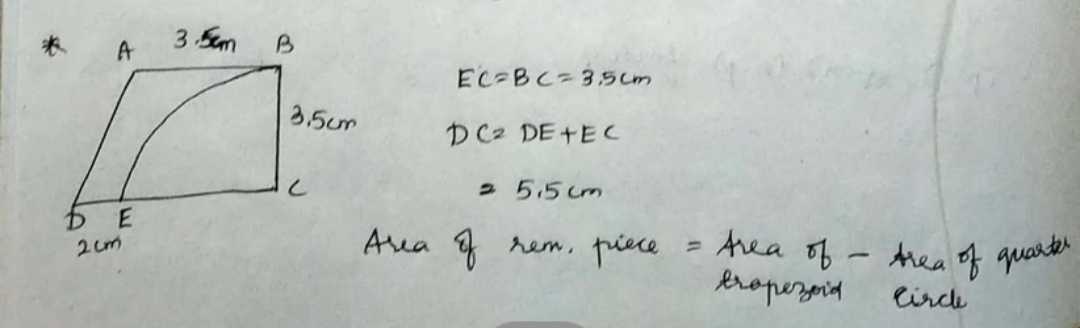 * A 3.5cm B
EC=BC=3.5cm
3.5cm
DC= DE+EC
C
= 5.5cm
D E
2cm
Area of rem. piece = Area of - Area of quarter
trapezoid circle